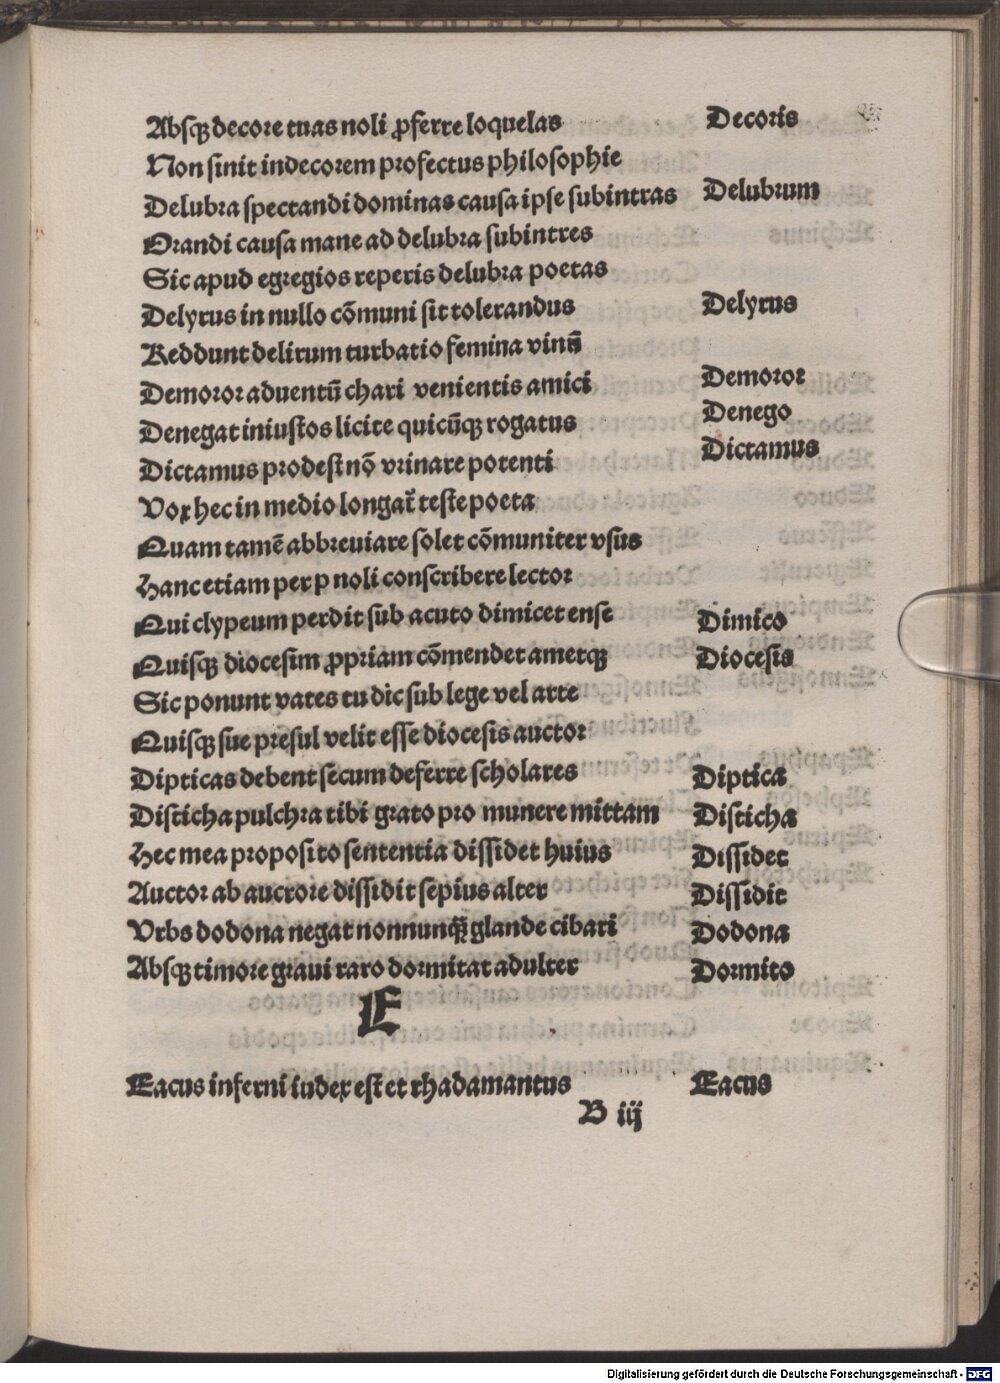 Absqꝫ decore tuas noli ꝓferre loquelas Decoris
Non sinit indecorem profectus philosophie
Delubra spectandi dominas causa ipse subintras Delubrum
Orandi causa mane ad delubra subintres
Sic apud egregios reperis delubra poetas
Delyrus in nullo cōmuni sit tolerandus Delyrus
Reddunt delirum turbatio femina vinū
Demoror aduentū chari venientis amici Demoror
Denegat iniustos licite quicūqꝫ rogatus Denego
Dictamus prodest nō vrinare potenti Dictamus
Vox hec in medio longat᷑ teste poeta
Quam tamē abbreuiare solet cōmuniter vsus
Hanc etiam per p noli conscribere lector
Qui clypeum perdit sub acuto dimicet ense Dimico
Quisqꝫ diocesim ꝓpriam cōmendet ametqꝫ Diocesis
Sic ponunt vates tu dic sub lege vel arte
Quisqꝫ sue presul velit esse diocesis auctor
Dipticas debent secum deferre scholares Diptica
Disticha pulchra tibi grato pro munere mittam Disticha
Hec mea proposito sententia dissidet huius Dissidet
Auctor ab auctore dissidit sepius alter Dissidit
Vrbs dodona negat nonnunqꝫ̄ glande cibari Dodona
Absqꝫ timore graui raro dormitat adulter Dormito
E
Eacus inferni iudex est et rhadamantus Eacus
B iij
Digitalisierung gefördert durch die Deutsche Forschungsgemeinschaft - DFG